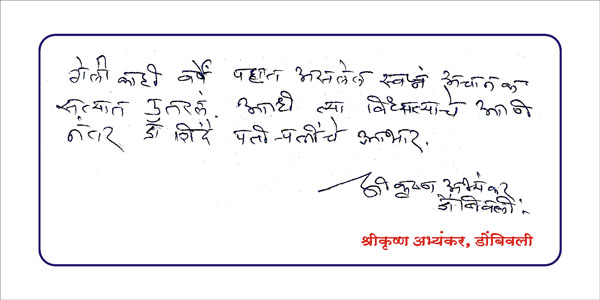 गेली काही वर्षे पहात असलेलं स्वप्नं अचानक
सत्यात उतरलं. आधी त्या विधात्याचे आणि
नंतर डॉ शिंदे पती-पत्नींचे आभार.
श्रीकृष्ण अभ्यंकर
डोंबिवली.
श्रीकृष्ण अभ्यंकर, डोंबिवली